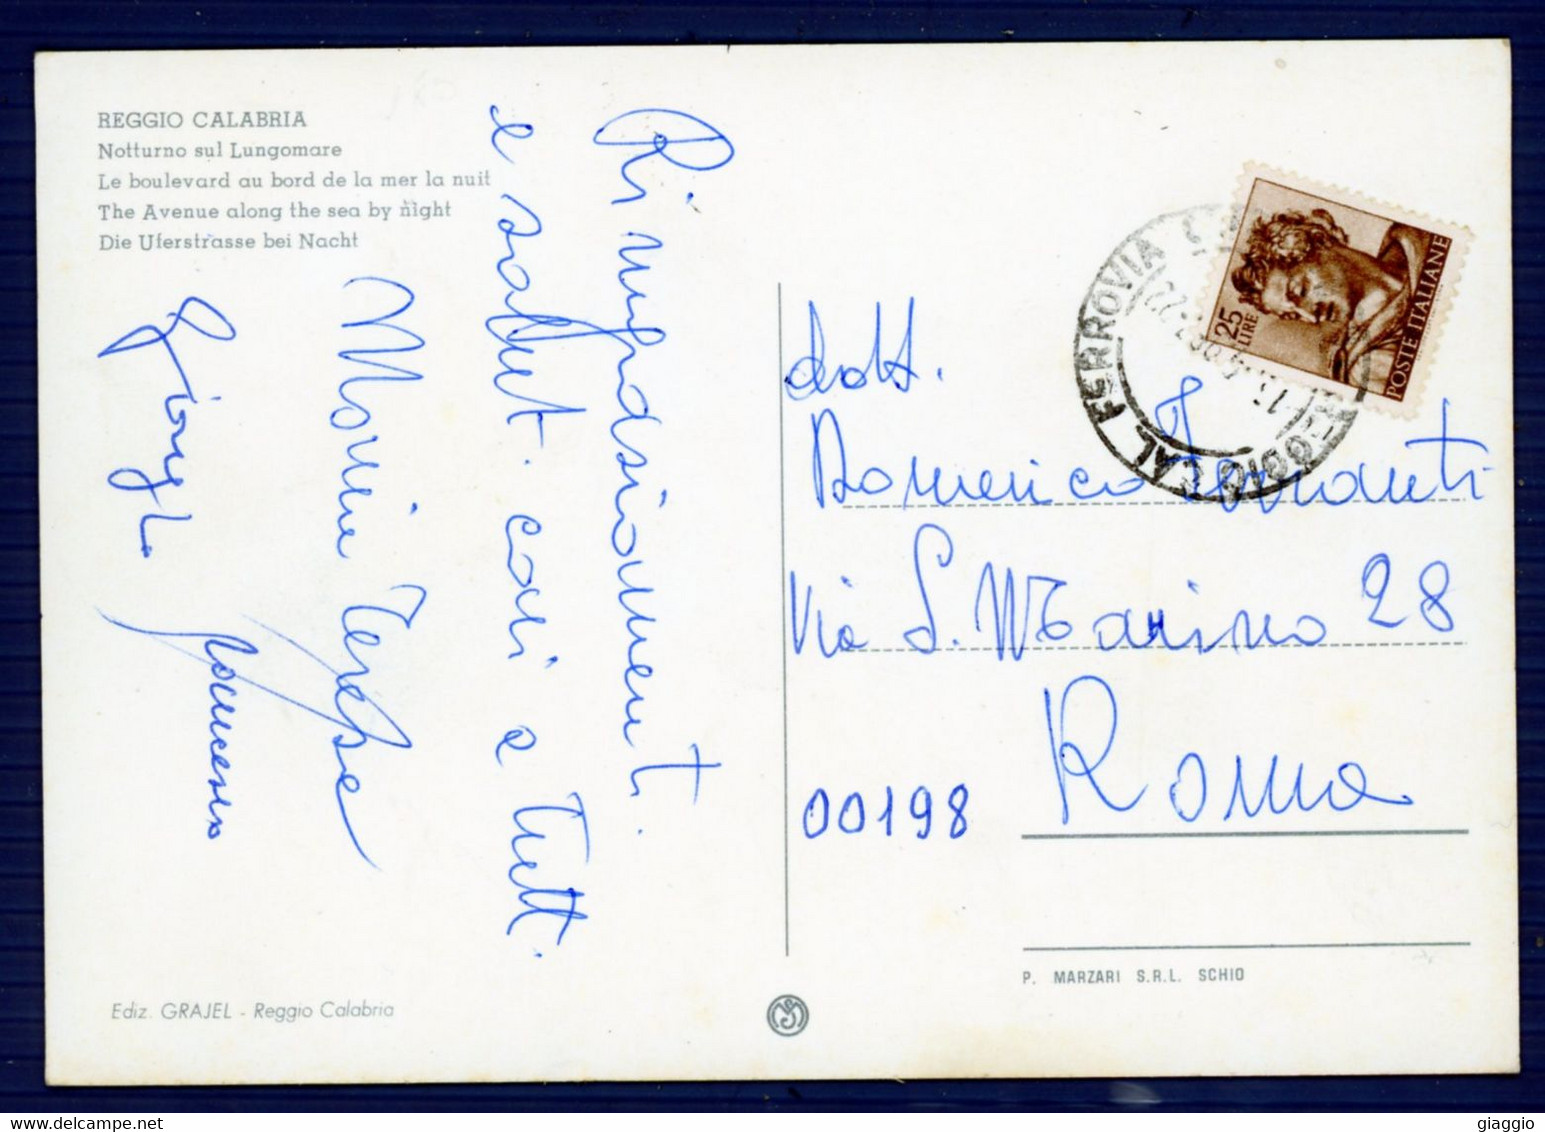 REGGIO CALABRIA
Notturno sul Lungomare
Le boulevard au bord de la mer la nuit
The Avenue along the sea by night
Die Uferstrasse bei Nacht
Ringraziamenti
e saluti cari a tutti.
Maria Teresa
Giorgio
Francesco
25
LIRE
POSTE ITALIANE
REGGIO CAL FERROVIA
dott.
Domenico
Via S. Marino 28
Roma
00198
P. MARZARI S.R.L. SCHIO
Ediz. GRAJEL - Reggio Calabria
giaggio